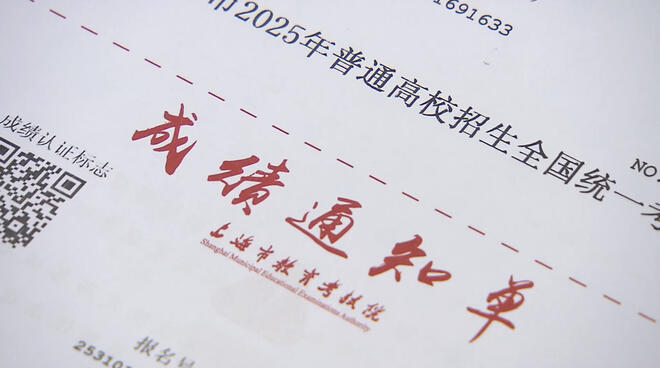 1691633
市2025年普通高校招生全国统一考
NO
成绩认证标志
成绩通知单
上海市教育考试院
Shanghai Municipal Educational Examinations Authority
报名号
25310